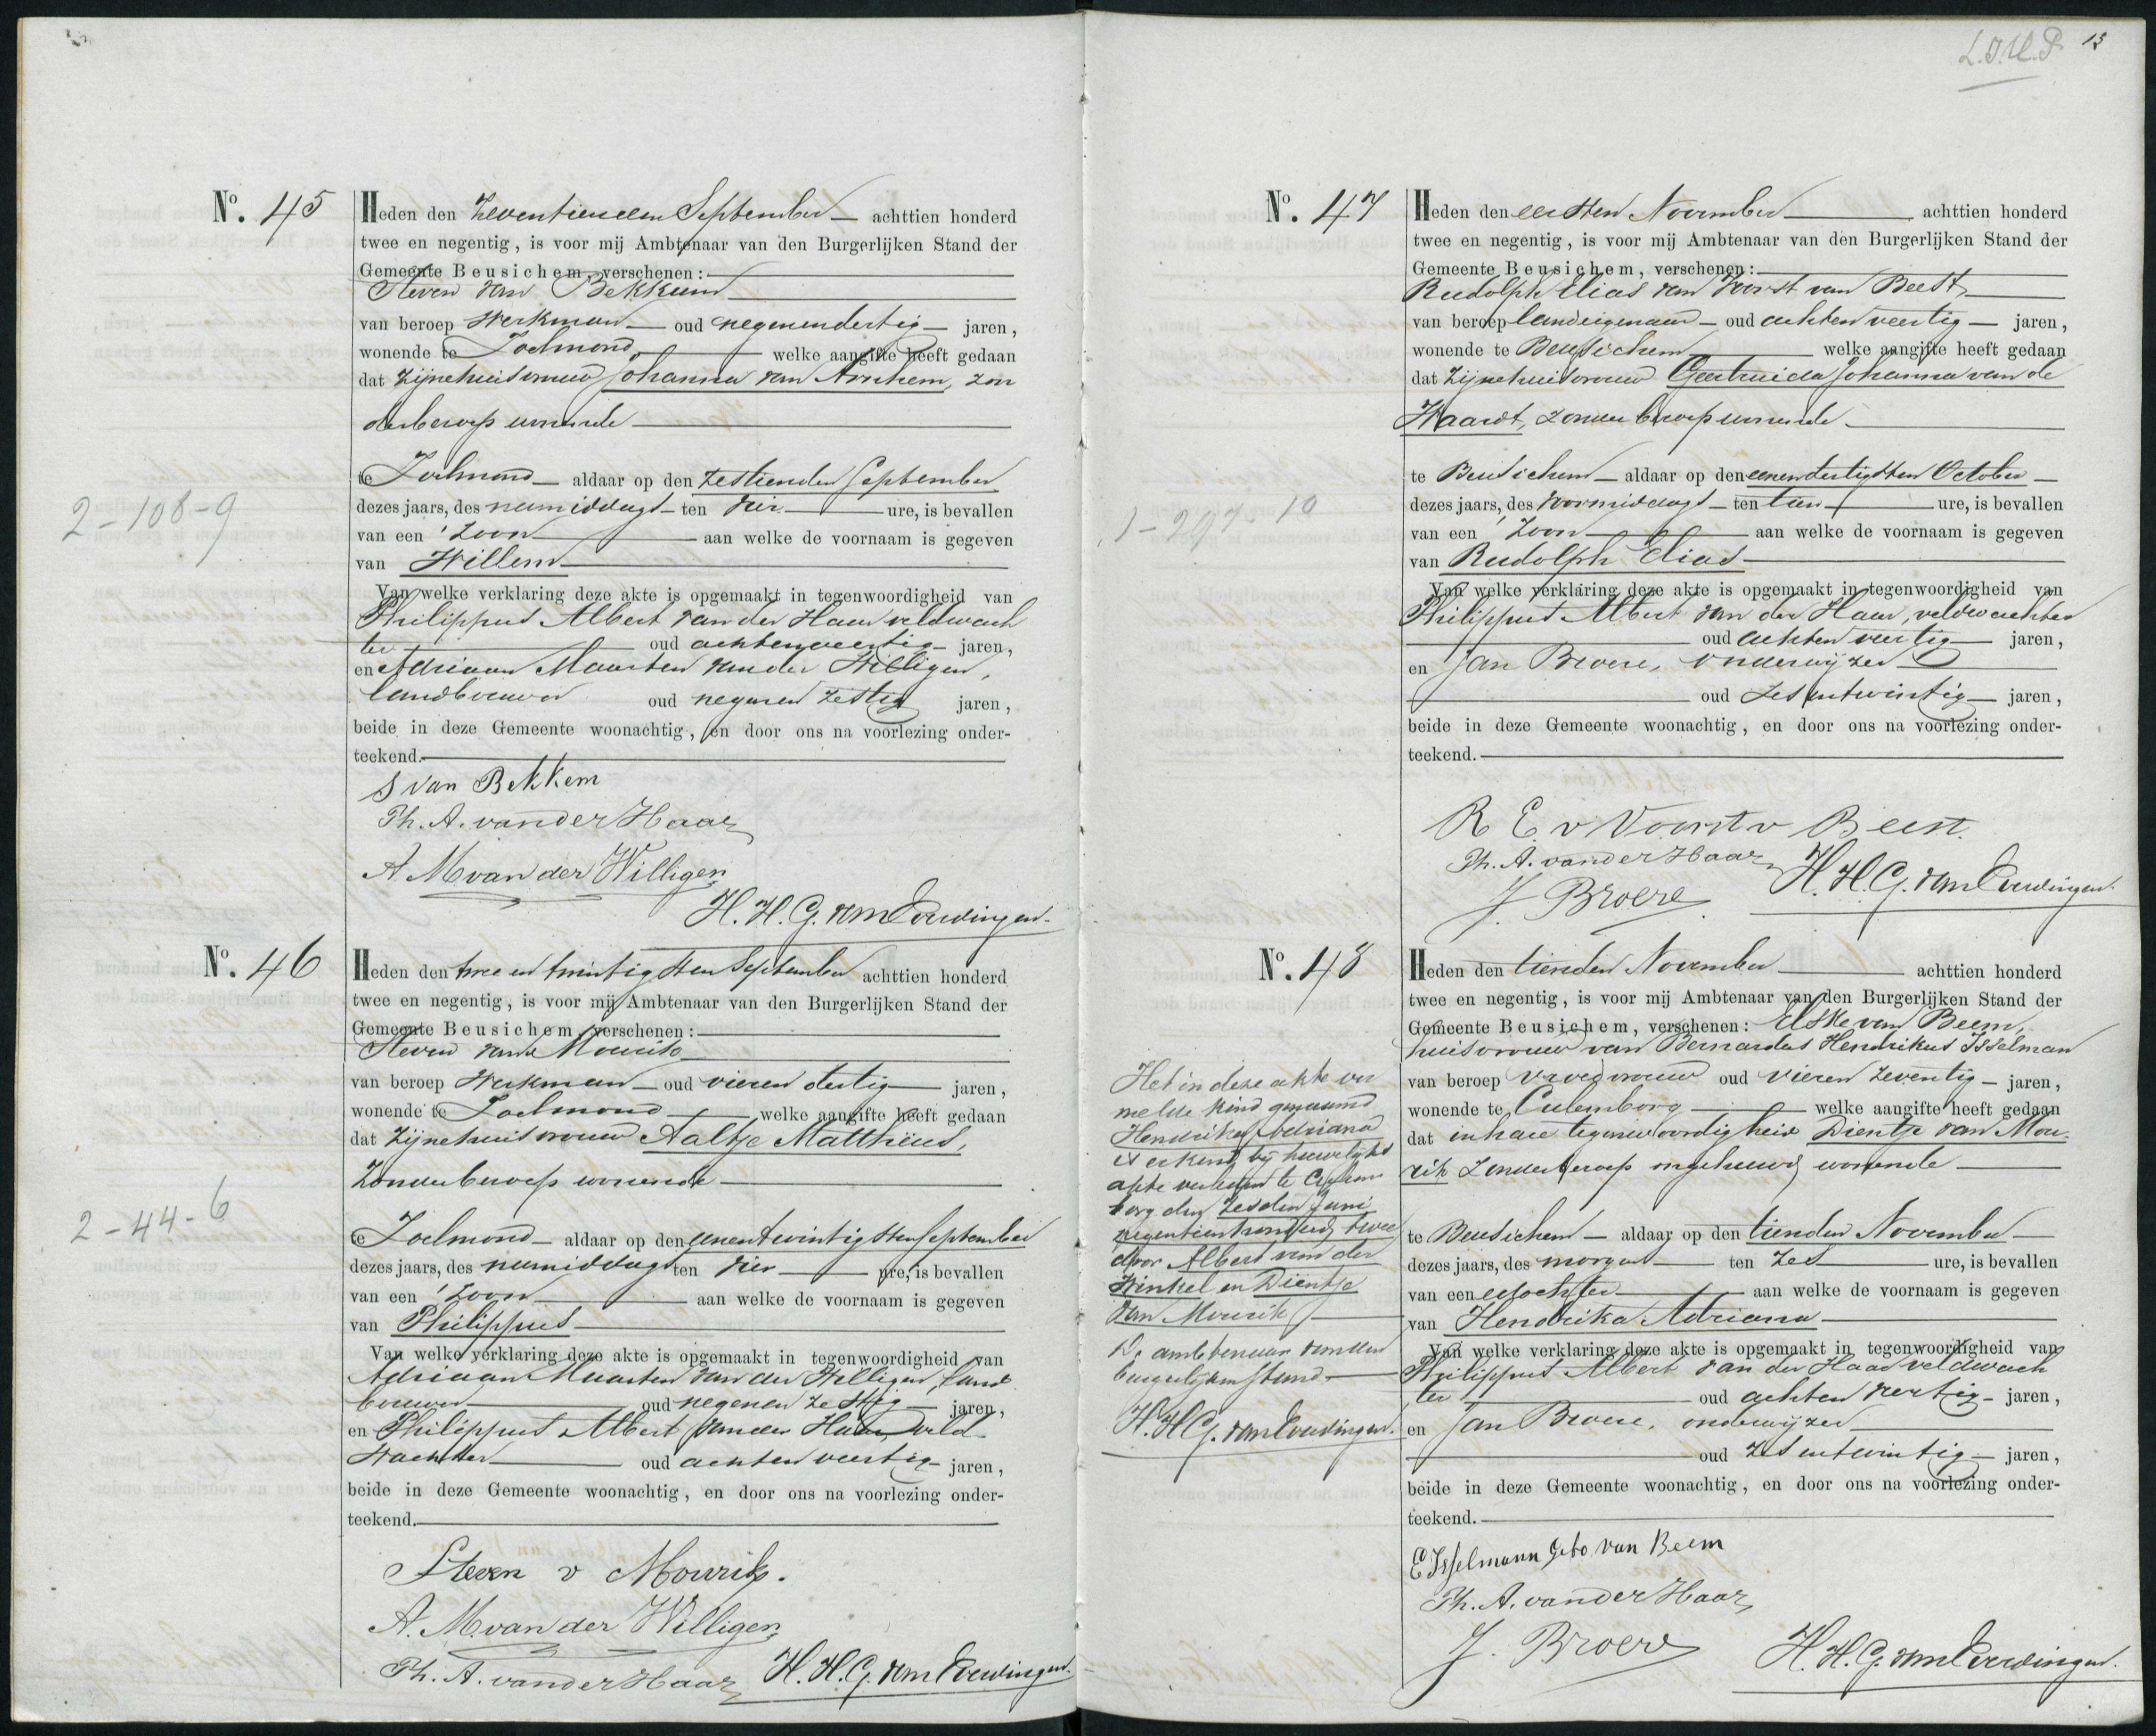 L.J.U.P. 13
2-108-9
No. 45
Heden den Zeventienden September achttien honderd
twee en negentig, is voor mij Ambtenaar van den Burgerlijken Stand der
Gemeente Beusichem, verschenen:
Steven van Bekkum
van beroep Werkman oud negenendertig jaren,
wonende te Zoelmond welke aangifte heeft gedaan
dat Zijne huisvrouw Johanna van Arnhem, zon
der beroep wonende
te Zoelmond aldaar op den Zestienden September
dezes jaars, des namiddags ten vier ure, is bevallen
van een Zoon aan welke de voornaam is gegeven
van Willem
Van welke verklaring deze akte is opgemaakt in tegenwoordigheid van
Philippus Albert van der Haar veldwach
ter oud achtenveertig jaren,
en Adriaan Maarten van der Willigen,
landbouwer oud negenen zestig jaren,
beide in deze Gemeente woonachtig, en door ons na voorlezing onder-
teekend.
S van Bekkem
Ph. A. van der Haar
A. M van der Willigen
H. H. G. van Everdingen.
2-44-6
No. 46
Heden den twee en twintigsten September achttien honderd
twee en negentig, is voor mij Ambtenaar van den Burgerlijken Stand der
Gemeente Beusichem, verschenen:
Steven van Mourik
van beroep Werkman oud vieren dertig jaren,
wonende te Zoelmond welke aangifte heeft gedaan
dat Zijne huisvrouw Aaltje Matthëus,
Zonder beroep wonende
te Zoelmond aldaar op den eenentwintigsten September
dezes jaars, des namiddags ten vier ure, is bevallen
van een Zoon aan welke de voornaam is gegeven
van Philippus
Van welke verklaring deze akte is opgemaakt in tegenwoordigheid van
Adriaan Maarten van der Willigen, land
bouwer oud negenen zestig jaren,
en Philippus Albert van der Haar, veld
wachter oud achten veertig jaren,
beide in deze Gemeente woonachtig, en door ons na voorlezing onder-
teekend.
Steven v Mourik.
A. M. van der Willigen
Ph. A. van der Haar H. H. G. van Everdingen.
1-297-10
No. 47
Heden den eersten November achttien honderd
twee en negentig, is voor mij Ambtenaar van den Burgerlijken Stand der
Gemeente Beusichem, verschenen:
Rudolph Elias van Voorst van Beest
van beroep landeigenaar oud achten veertig jaren,
wonende te Beusichem welke aangifte heeft gedaan
dat Zijne huisvrouw Geertruida Johanna van de
Waardt, zonder beroep wonende
te Beusichem aldaar op den eenendertigsten October
dezes jaars, des voormiddags ten tien ure, is bevallen
van een Zoon aan welke de voornaam is gegeven
van Rudolph Elias
Van welke verklaring deze akte is opgemaakt in tegenwoordigheid van
Philippus Albert van der Haar, veldwachter
oud achten veertig jaren,
en Jan Broere, onderwijzer
oud zes entwintig jaren,
beide in deze Gemeente woonachtig, en door ons na voorlezing onder-
teekend.
R E v Voorst v Beest.
Ph. A. van der Haar H. H. G. van Everdingen.
J. Broere
No. 48
Heden den tienden November achttien honderd
twee en negentig, is voor mij Ambtenaar van den Burgerlijken Stand der
Gemeente Beusichem, verschenen: Elske van Beem,
huisvrouw van Bernardus Hendrikus Isselman
van beroep Vroedvrouw oud vieren zeventig jaren,
wonende te Culemborg welke aangifte heeft gedaan
dat in hare tegenwoordigheid Dientje van Mou-
rik Zonder beroep ongehuwd wonende
te Beusichem aldaar op den tienden November
dezes jaars, des morgens ten Zes ure, is bevallen
van een dochter aan welke de voornaam is gegeven
van Hendrika Adriana
Van welke verklaring deze akte is opgemaakt in tegenwoordigheid van
Philippus Albert van der Haar veldwach
ter oud achten veertig jaren,
en Jan Broere, onderwijzer
oud zes entwintig jaren,
beide in deze Gemeente woonachtig, en door ons na voorlezing onder-
teekend.
E Isselmann gebo van Beem
Ph. A. van der Haar
J. Broere H. H. G. van Everdingen.
Het in deze akte ver
melde kind genaamd
Hendrika Adriana
is erkend bij huwelijks
akte verleden te Culem
borg den zesden Juni
negentienhonderd twee
door Albert van der
Winkel en Diëntje
van Mourik
De ambtenaar van den
burgerlijken stand
H. H. G. van Everdingen.